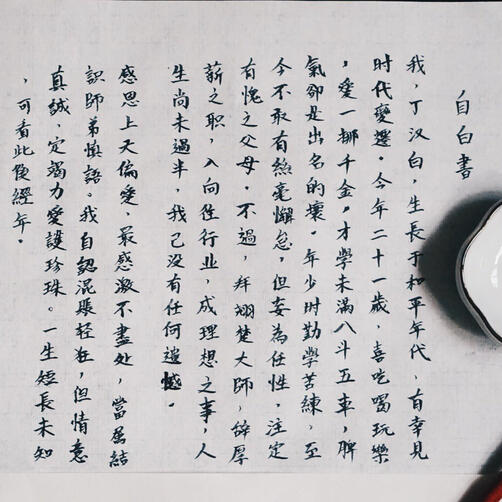 自白書
我，丁汉白，生長于和平年代，有幸見
时代變遷。今年二十一歲，喜吃喝玩樂
，愛一擲千金。才學未滿八斗五車，脾
氣卻是出名的壞。年少时勤學苦練，至
今不敢有絲毫懈怠，但妄為任性，注定
有愧之父母。不過，拜翊楚大師，辞厚
薪之职，入向往行业，成理想之事，人
生尚未過半，我已没有任何遺憾。
感恩上天偏愛，最感激不盡處，當屬結
识師弟慎語。我自認混賬轻狂，但情意
真誠，定竭力愛護珍珠。一生短長未知
，可看此後經年。